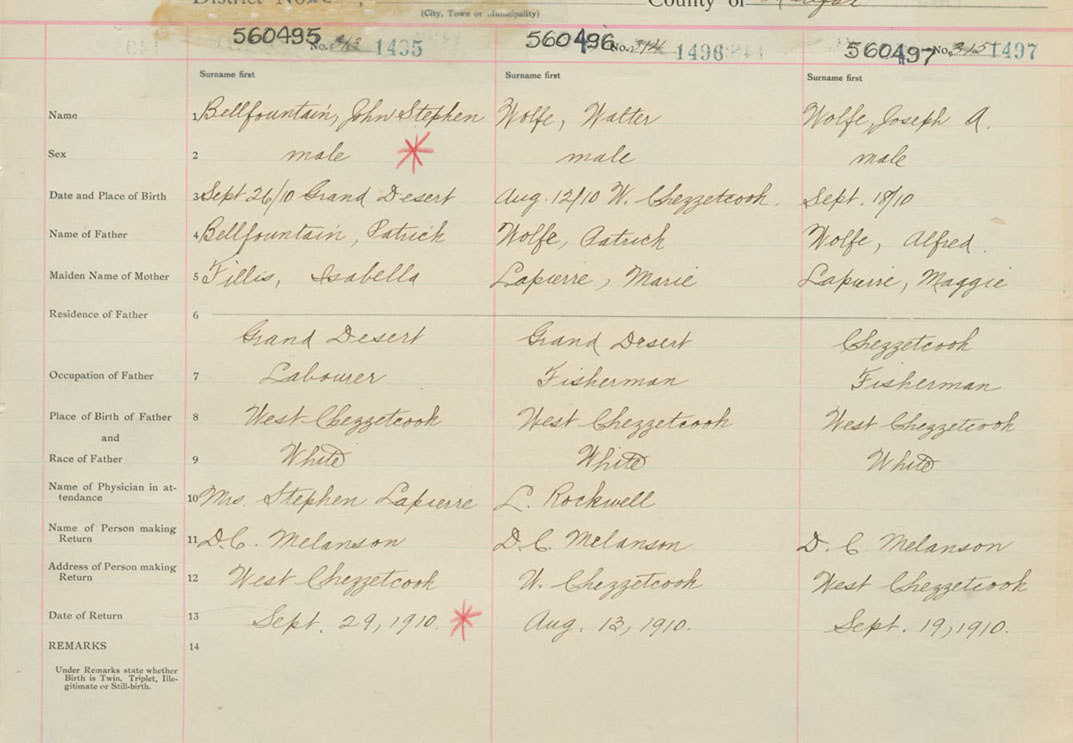 District No.
County of Halifax
(City, Town or Municipality)
560495 No. 313 1495
560496 No. 314 1496
560497 No. 315 1497
Surname first Surname first Surname first
Name 1 Bellfountain, John Stephen Wolfe, Walter Wolfe, Joseph A.
Sex 2 male male male
Date and Place of Birth 3 Sept 26/10 Grand Desert Aug. 12/10 W. Chezzetcook. Sept. 18/10
Name of Father 4 Bellfountain, Patrick Wolfe, Patrick Wolfe, Alfred.
Maiden Name of Mother 5 Fillis, Isabella Lapierre, Marie Lapierre, Maggie
Residence of Father 6
Grand Desert Grand Desert Chezzetcook
Occupation of Father 7 Labourer Fisherman Fisherman
Place of Birth of Father 8 West Chezzetcook West Chezzetcook West Chezzetcook
and
Race of Father 9 White White White
Name of Physician in at-
tendance 10 Mrs. Stephen Lapierre L. Rockwell
Name of Person making
Return 11 D.C. Melanson D.C. Melanson D. C Melanson
Address of Person making
Return 12 West Chezzetcook W. Chezzetcook West Chezzetcook
Date of Return 13 Sept. 29, 1910. Aug. 13, 1910. Sept. 19, 1910.
REMARKS 14
Under Remarks state whether
Birth is Twin, Triplet, Ille-
gitimate or Still-birth.